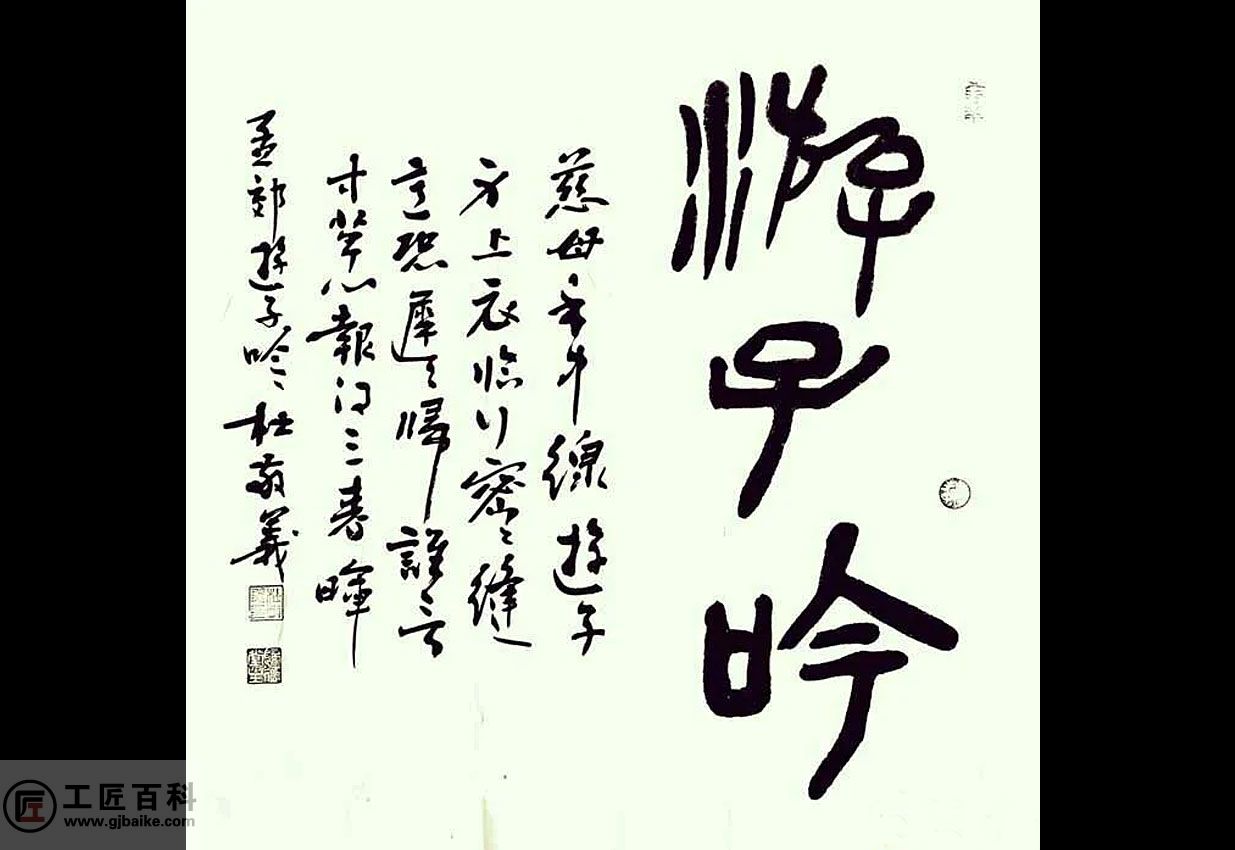 游子吟
慈母手中線遊子
身上衣臨行密〻縫
意恐遲〻歸誰言
寸草心報得三春暉
孟郊遊子吟 杜敬義
匠
工匠百科
www.gjbaike.com